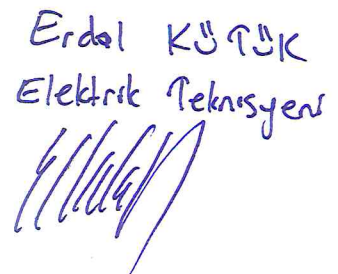 Erdal KÜTÜK
Elektrik Teknisyeni